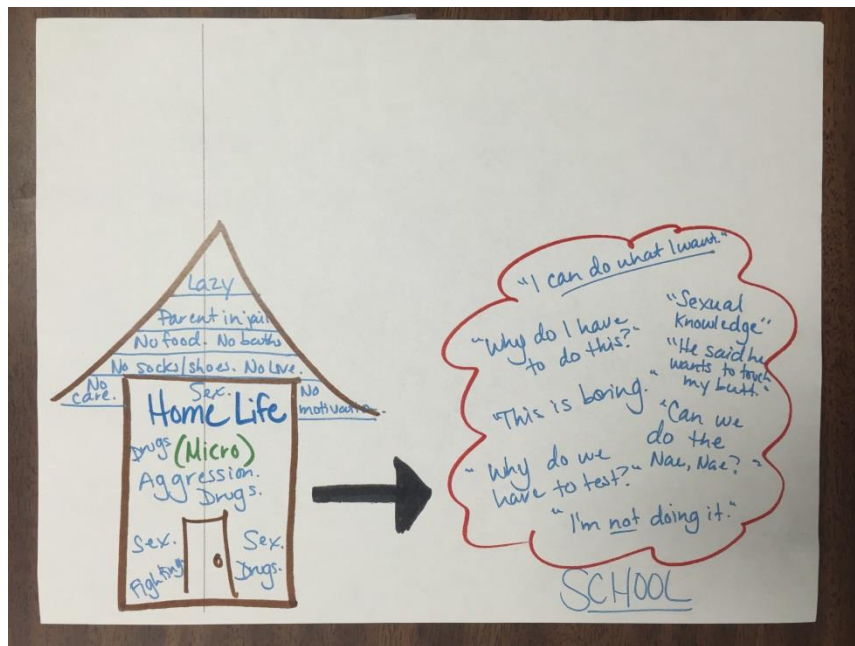 Lazy
Parent in jail
No food. No baths
No socks/shoes. No Love.
No
care.
Sex.
No
motivation.
Home Life
Drugs
(Micro)
Aggression.
Drugs.
Sex.
Sex.
Fighting
Drugs.
"I can do what I want."
"Why do I have
to do this?"
"Sexual
Knowledge"
"He said he
wants to touch
my butt."
"This is boring."
"Can we
do the
Nae, Nae?"
"Why do we
have to test?"
"I'm not doing it."
SCHOOL